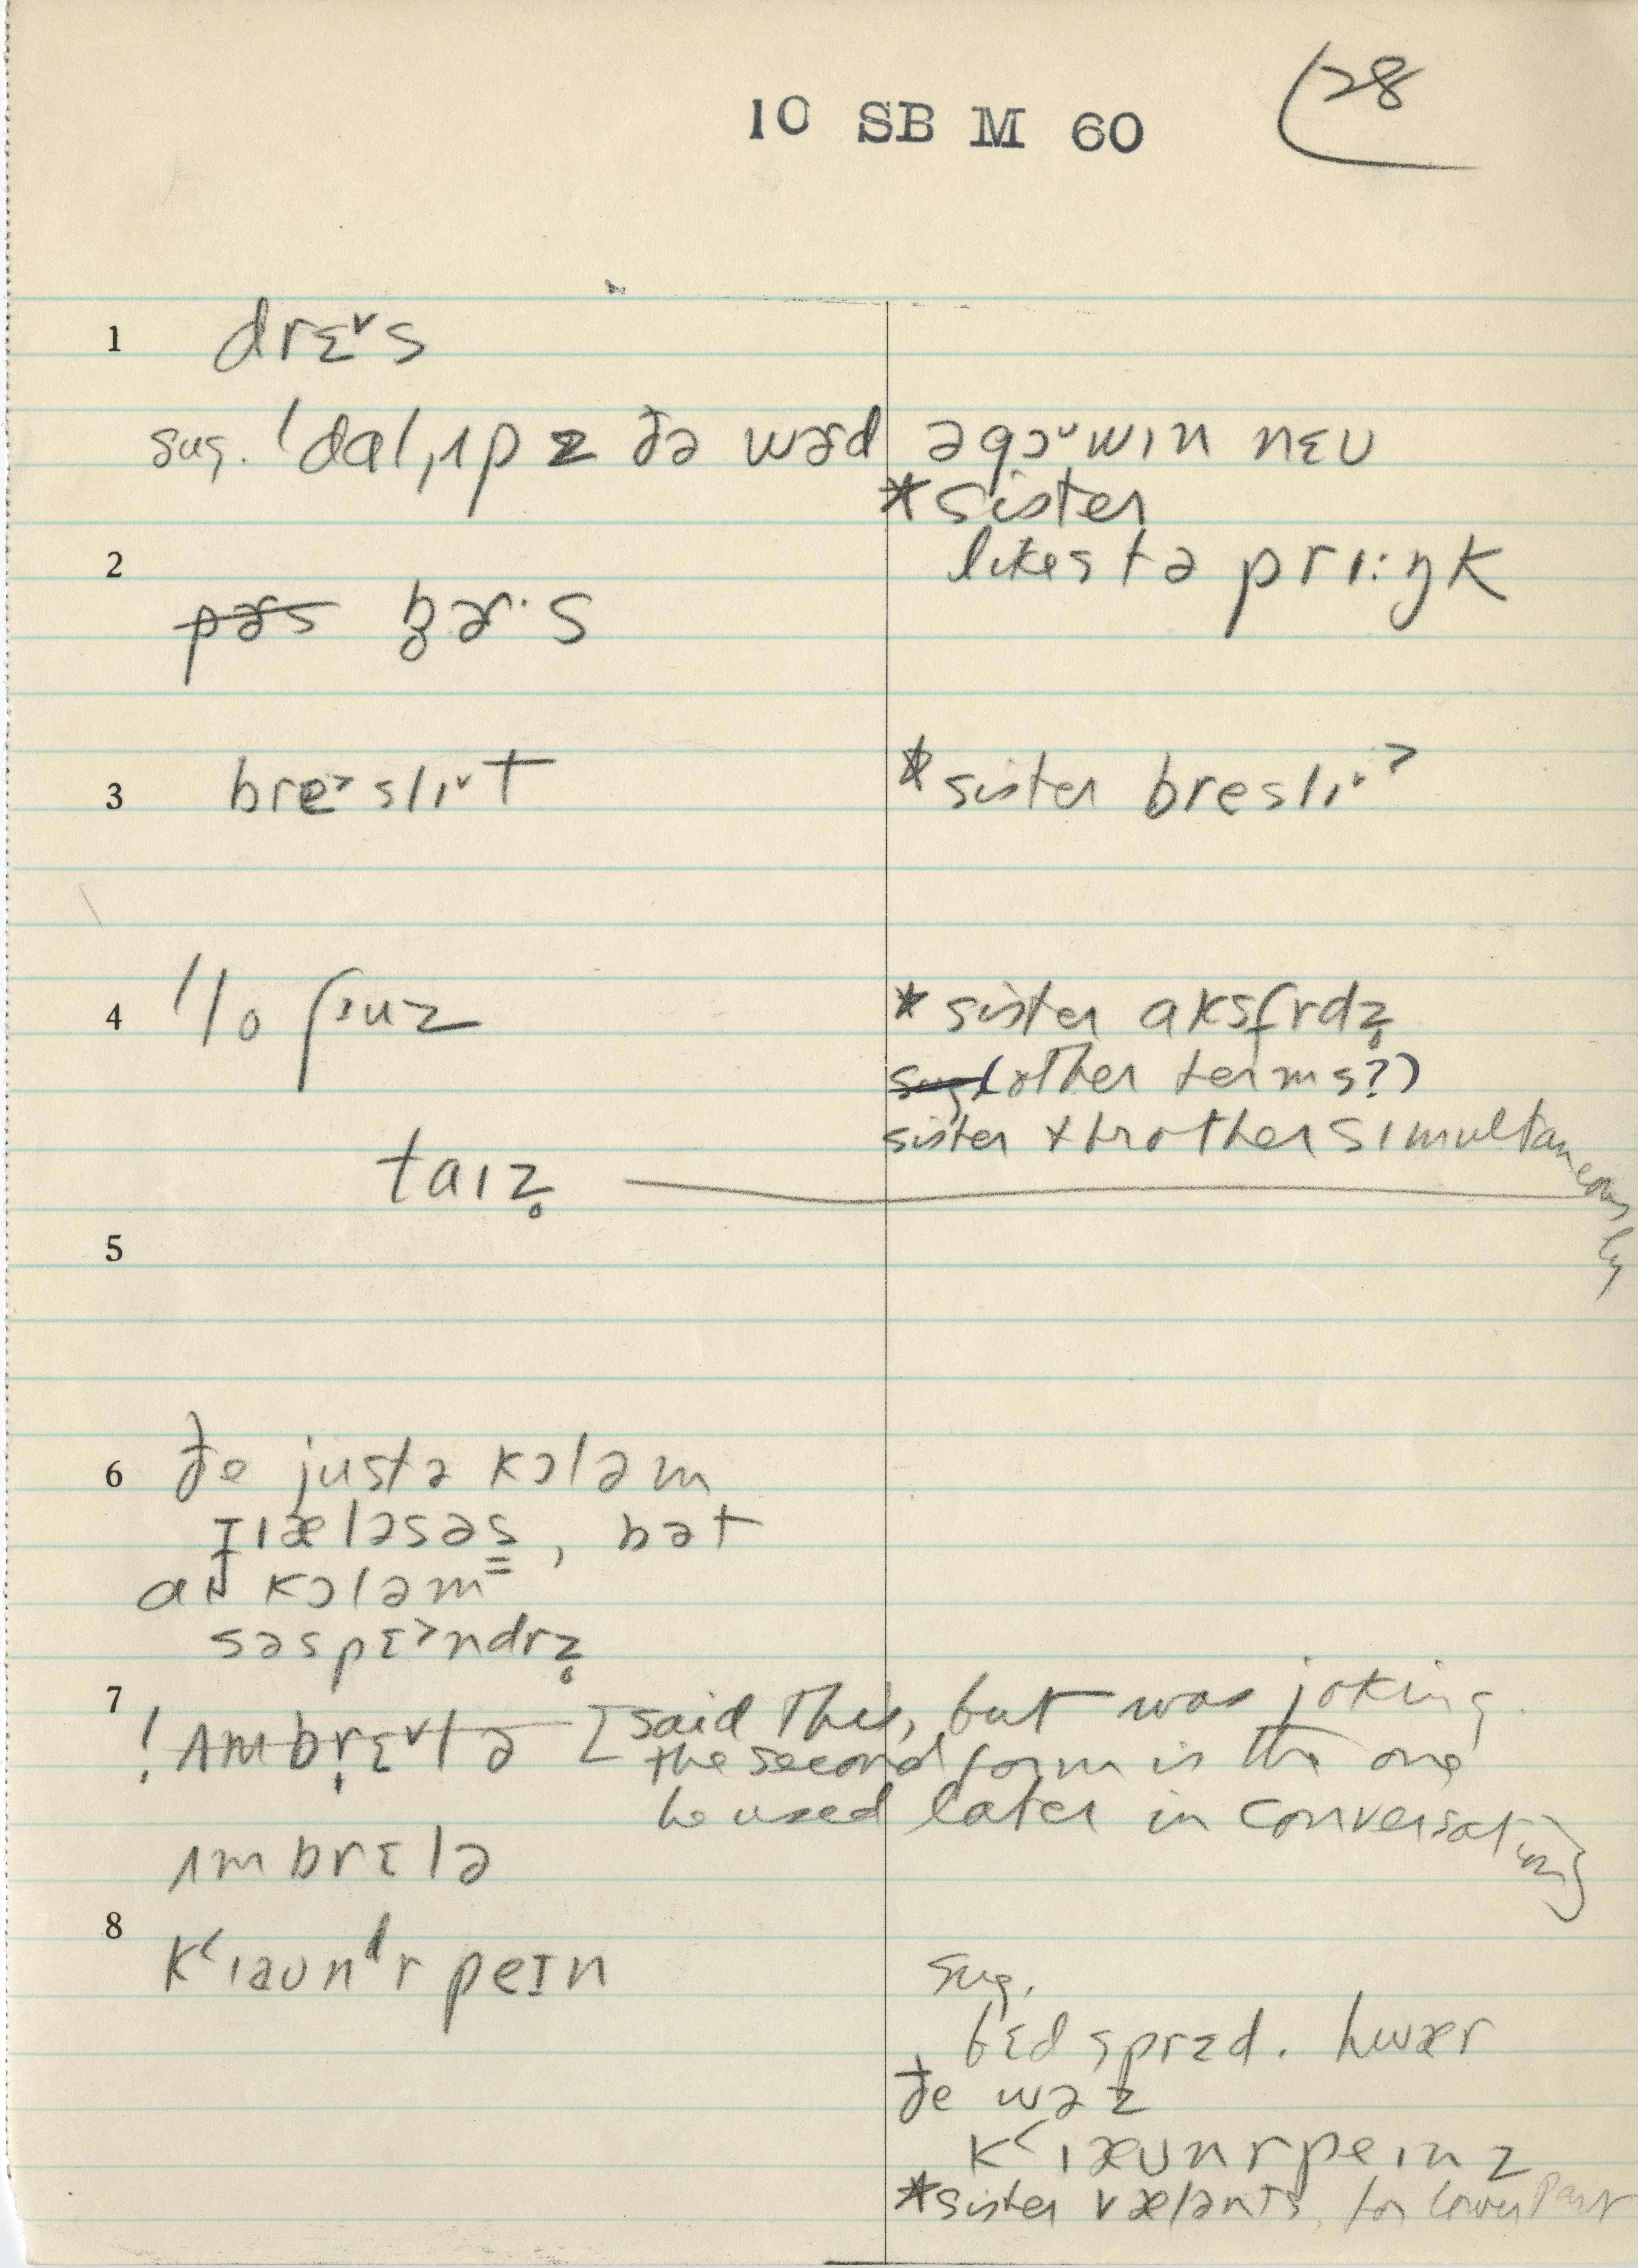 10 SB M 60
28
1 drɛ˅s
sug. ˈdalˌɪp z ðə wɚd əgɔ˅wɪn nɛʊ
*sister
likes tə prɪːŋk
2 pɚs b̥ɚ·s
3 bre˃slɪ˅t
*sister breslɪ˅
4 ˈlo ʃuz
*sister aksfrdz̥
sug (other terms?)
sister + brother simultaneously
taɪz̥
5
6 ðe justə kɔləm
gɪæləsəs, bət
aɪ kɔləm
səspɛ˃ndrz̥
7
! ʌmbrɛ˅lə [said this, but was joking.
the second form is the one
he used later in conversation]
ʌmbrɛlə
8 kʻɪaʊnᵈr peɪn
sug.
bɛd sprɛd. hwær
ðe wəz
kʻɪæʊnrpeɪnz
*sister væləns, for lower part